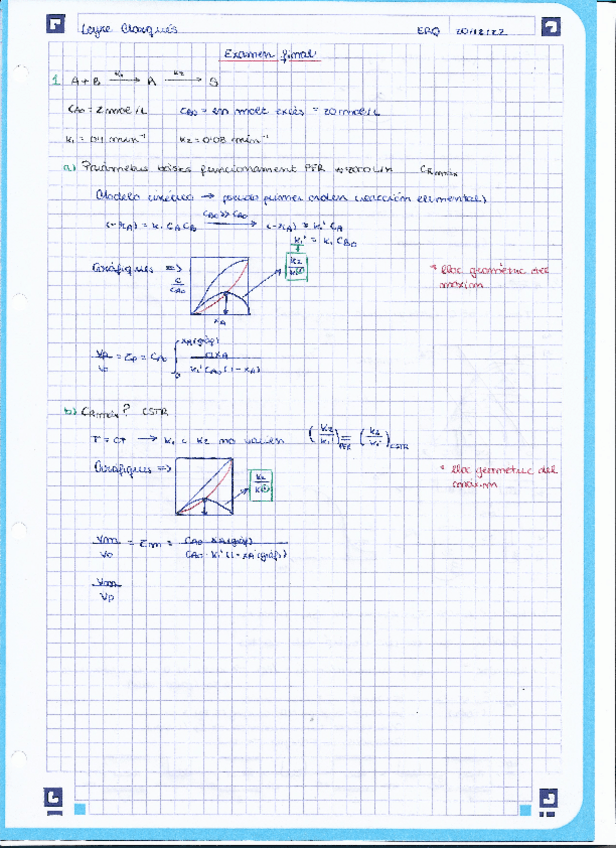 ERQ 20/12/22
Examen final
1 A + B →(k1) A →(k2) S
CA0 = 2 mol/L CB0 = en molt excés = 20 mol/L
k1 = 0.1 min⁻¹ k2 = 0.08 min⁻¹
a) Paràmetres bàsics funcionament PFR CRmàx
Modelo cinético → pseudo primer orden (reacción elemental)
(-rA) = k1 CA CB →(CB0 >> CA0) (-rA) = k1' CA
k1' = k1 CB0
Gràfiques => C/CA0 XA k2/k1' * lloc geomètric del màxim
Vp/V0 = τp = CA0 ∫0^XA(gràf) dXA / k1' CA0 (1-XA)
b) CRmàx? CSTR
T = ct → k1 i k2 no varien (k2/k1')PFR = (k2/k1')CSTR
Gràfiques => k2/k1' * lloc geomètric del màxim
Vm/V0 = τm = CA0 XA(gràf) / CA0 · k1' (1-XA(gràf))
Vm/Vp